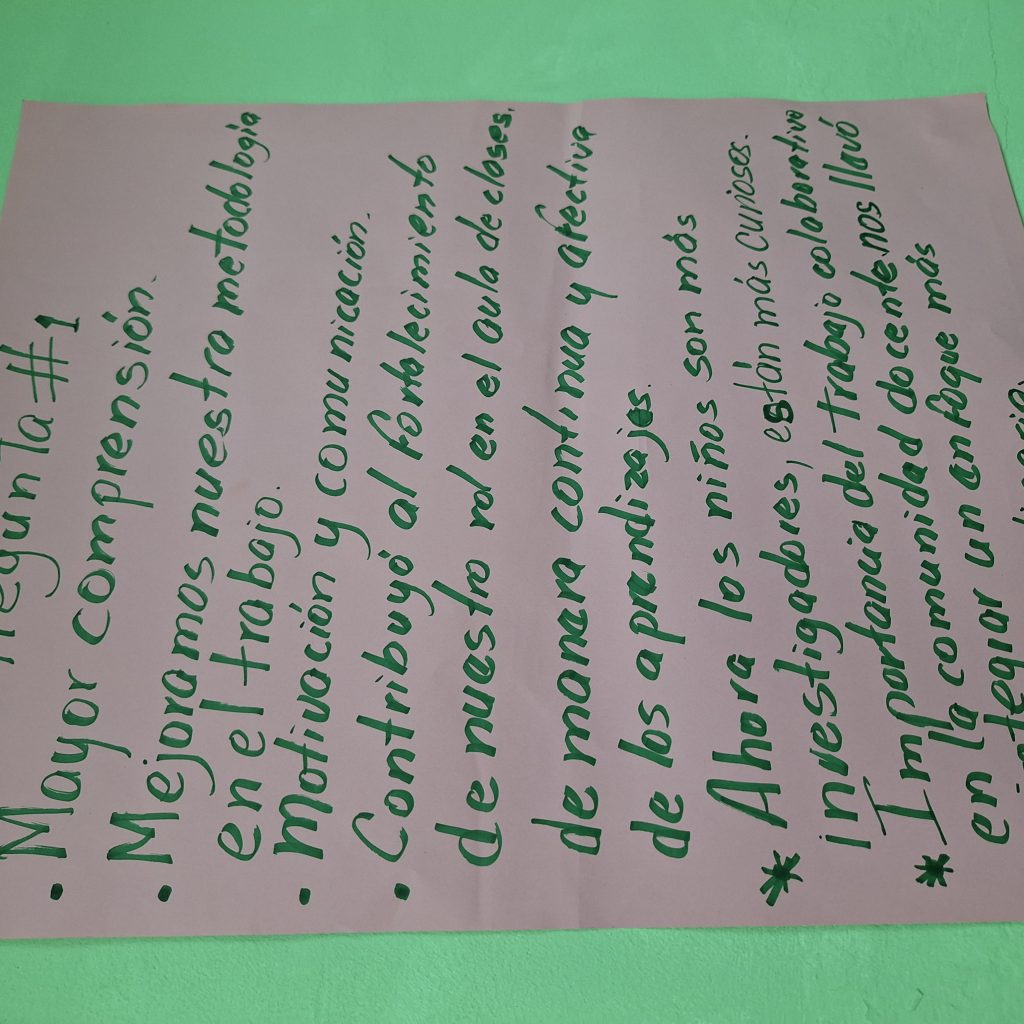 Pregunta #1
• Mayor comprensión.
• Mejoramos nuestra metodologia
en el trabajo.
• Motivación y comunicación.
• Contribuyó al fortalecimiento
de nuestro rol en el aula de clases,
de manera continua y afectiva
de los aprendizajes.
* Ahora los niños son más
investigadores, están más curiosos.
* Importancia del trabajo colaborativo
en la comunidad docente, nos llevó
integrar un enfoque más